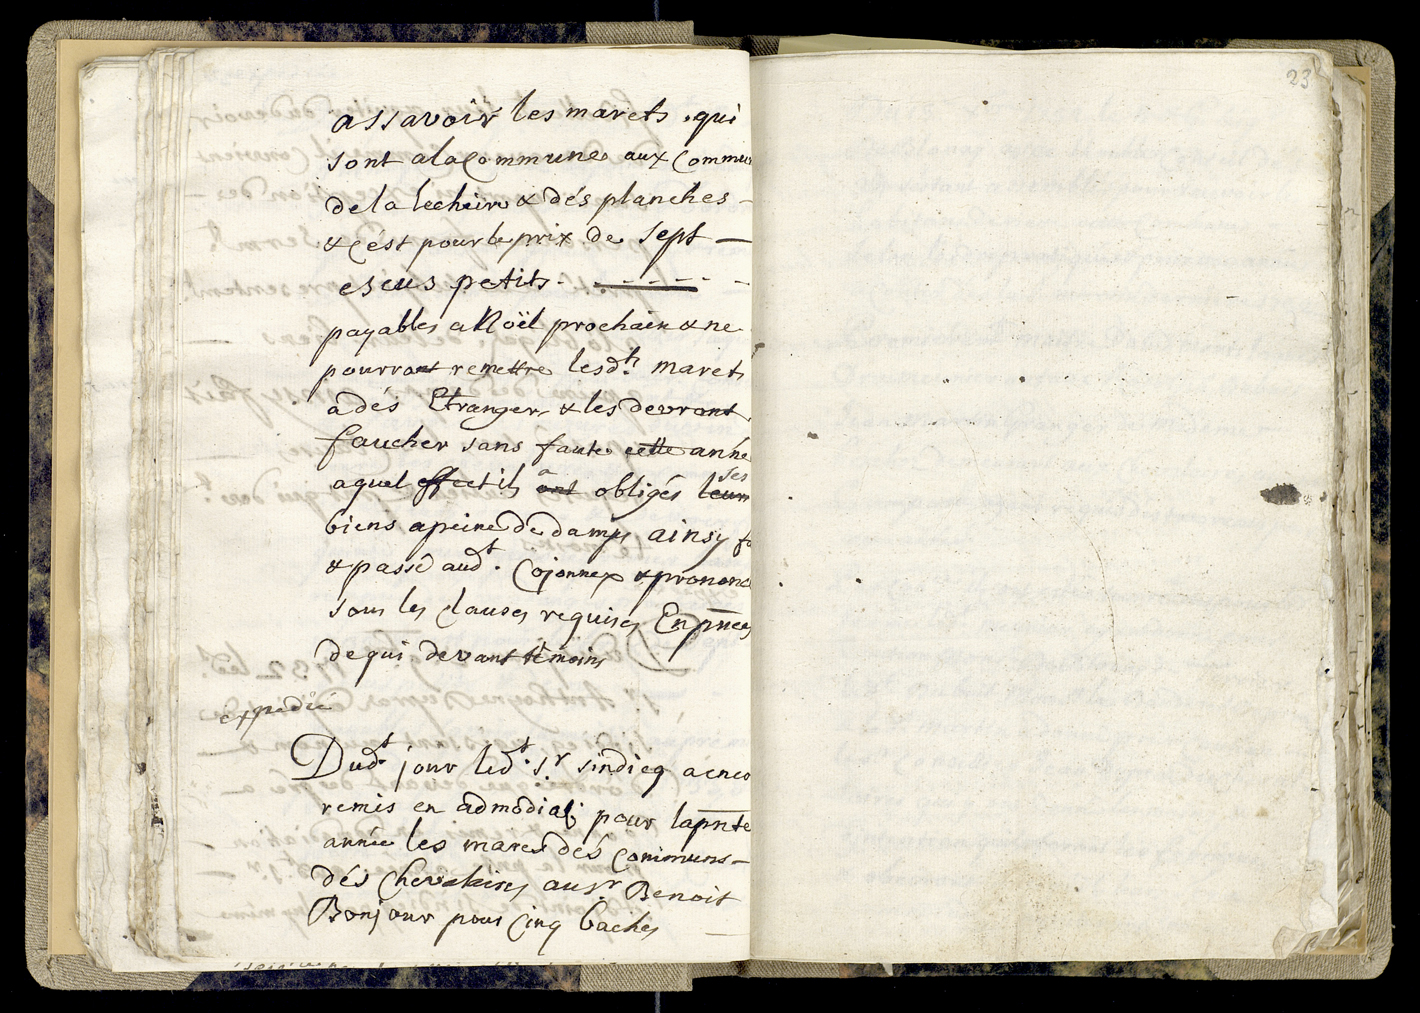 assavoir les marets qui
sont a la Commune aux Commu
de la lecheire & dés planches
& C'ést pour le prix de sept
escus petits
payables a Noël prochain & ne
pourront remettre lesd.ts marets
a dés Etrangers & les devront
faucher sans faute cette anné
aquel effect ils a ont obligés ses leurs
biens a peine de damps ainsy fa
& passé aud.t Cojonnex & prononc
sous les clauses requises En pnces
de qui devant témoins
expedié
Dud.t jour led.t s.r sindicq a enco
remis en admodia͠o pour la pnte
année les mares dés Communs
dés Chevalaires au s.r Benoit
Bonjour pour Cinq baches
23